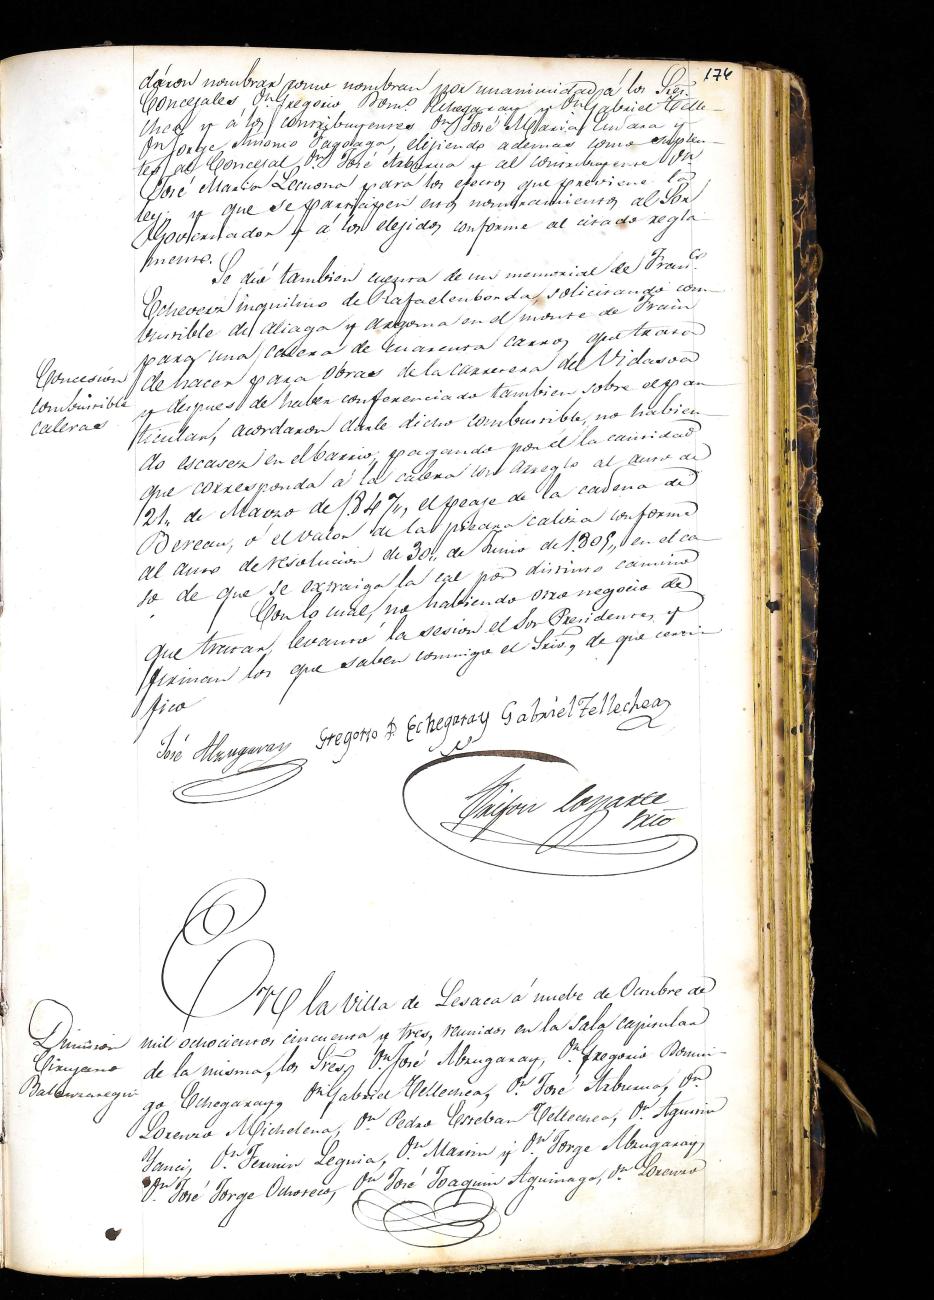 174
daron nombrar como nombran por unanimidad á los Sres.
Concejales Dn. Gregorio Domo. Echegaray y Dn. Gabriel Telle-
chea y á los contribuyentes Dn. José María Endara y
Dn. Jorge Antonio Tagoaga, elijiendo ademas como suplen-
tes al Concejal Dn. José Arburua y al contribuyente Dn.
José María Lecuona para los efectos que previene la
ley y que se participen estos nombramientos al Sor.
Governador y á los elejidos conforme al citado regla-
mento.
Se dió tambien cuenta de un memorial de Franco.
Echeverz inquilino de Rafaelenborda, solicitando com-
bustible de aliaga y argoma en el monte de Frain
para una calera de cuarenta carros que trata
de hacer para obras de la carretera del Vidasoa
Concesión
combustible
caleras
y despues de haber conferenciado tambien sobre el par-
ticular, acordaron darle dicho combustible, no habien-
do escasez en el barrio, pagando por él la cantidad
que corresponda á la calera con arreglo al auto de
21,, de Marzo de 1847,, el peaje de la cadena de
Bereau, ó el valor de la piedra caliza conforme
al auto de resolucion de 30,, de Junio de 1805,, en el ca-
so de que se extraiga la cal por distinto camino
Con lo cual, no habiendo otro negocio de
que tratar, levantó la sesión el Sor Presidente, y
firman los que saben conmigo el Srio, de que certi-
fico
José Abzugaray Gregorio D. Echegaray Gabriel Tellechea
Srio
En la Villa de Lesaca á nuebe de Octubre de
Dimision
Cirujano
Balenzategui
mil ochocientos cincuenta y tres, reunidos en la Sala capitular
de la misma, los Sres, Dn. José Abzugaray, Dn. Gregorio Domin-
go Echegaray, Dn. Gabriel Tellechea, Dn. José Arburua, Dn.
Lorenzo Michelena, Dn. Pedro Esteban Tellechea, Dn. Agustin
Yanci, Dn. Fermin Leguia, Dn. Martin y Dn. Jorge Abzugaray,
Dn. José Jorge Ochoteco, Dn. José Joaquin Aguinaga, Dn. Lorenzo